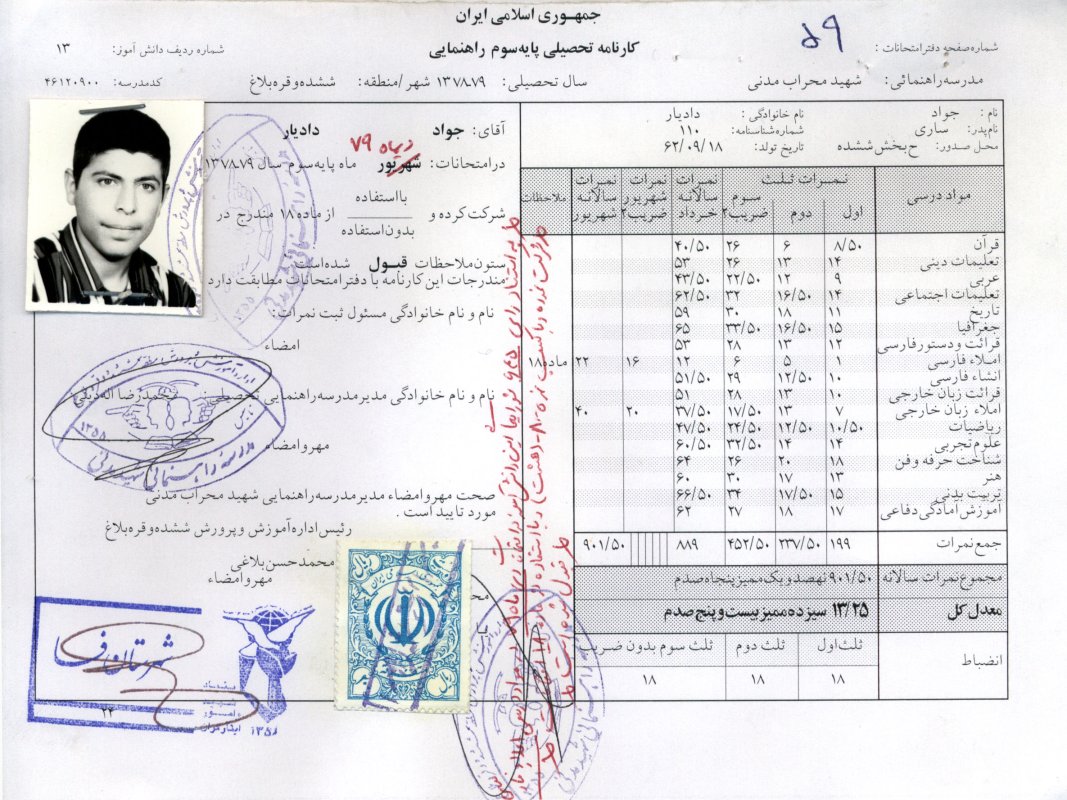 جمهوری اسلامی ایران
کارنامه تحصیلی پایه سوم راهنمایی
شماره صفحه دفتر امتحانات :
شماره ردیف دانش آموز: ۱۳
مدرسه راهنمائی: شهید محراب مدنی
سال تحصیلی: ۱۳۷۸.۷۹ شهر/منطقه: ششده و قره بلاغ
کد مدرسه: ۴۶۱۲۰۹۰۰
نام : جواد نام خانوادگی : دادیار
نام پدر: ساری شماره شناسنامه: ۱۱۰
محل صدور: ح بخش ششده تاریخ تولد: ۶۲/۰۹/۱۸
مواد درسی نمرات ثلث نمرات سالانه خرداد نمرات شهریور ضریب۲ نمرات سالانه شهریور ملاحظات
اول دوم سوم ضریب۲
قرآن ۸/۵۰ ۶ ۲۶ ۴۰/۵۰
تعلیمات دینی ۱۴ ۱۳ ۲۶ ۵۳
عربی ۹ ۱۲ ۲۲/۵۰ ۴۳/۵۰
تعلیمات اجتماعی ۱۴ ۱۶/۵۰ ۳۲ ۶۲/۵۰
تاریخ ۱۱ ۱۸ ۳۰ ۵۹
جغرافیا ۱۵ ۱۶/۵۰ ۳۳/۵۰ ۶۵
قرائت و دستور فارسی ۱۲ ۱۳ ۲۸ ۵۳
املاء فارسی ۱ ۵ ۶ ۱۲ ۱۶ ۲۲ ماده ۱۸
انشاء فارسی ۱۰ ۱۲/۵۰ ۲۹ ۵۱/۵۰
قرائت زبان خارجی ۱۰ ۱۳ ۲۸ ۵۱
املاء زبان خارجی ۷ ۱۳ ۱۷/۵۰ ۳۷/۵۰ ۲۰ ۴۰
ریاضیات ۱۰/۵۰ ۱۲/۵۰ ۲۴/۵۰ ۴۷/۵۰
علوم تجربی ۱۴ ۱۴ ۳۲/۵۰ ۶۰/۵۰
شناخت حرفه و فن ۱۸ ۲۰ ۲۶ ۶۴
هنر ۱۳ ۱۷ ۳۰ ۶۰
تربیت بدنی ۱۵ ۱۷/۵۰ ۳۴ ۶۶/۵۰
آموزش آمادگی دفاعی ۱۷ ۱۸ ۲۷ ۶۲
جمع نمرات ۱۹۹ ۲۳۷/۵۰ ۴۵۲/۵۰ ۸۸۹ ۹۰۱/۵۰
مجموع نمرات سالانه ۹۰۱/۵۰ نهصد و یک ممیز پنجاه صدم
معدل کل ۱۳/۲۵ سیزده ممیز بیست و پنج صدم
انضباط ثلث اول ثلث دوم ثلث سوم بدون ضریب
۱۸ ۱۸ ۱۸
آقای: جواد دادیار
دیماه ۷۹
در امتحانات: شهریور ماه پایه سوم سال ۱۳۷۸.۷۹
با استفاده
شرکت کرده و از ماده ۱۸ مندرج در
بدون استفاده
ستون ملاحظات قبول شده است
مندرجات این کارنامه با دفتر امتحانات مطابقت دارد
نام و نام خانوادگی مسئول ثبت نمرات:
امضاء
نام و نام خانوادگی مدیر مدرسه راهنمایی تحصیلی: محمدرضا
مهر و امضاء
صحت مهر و امضاء مدیر مدرسه راهنمایی شهید محراب مدنی
مورد تایید است .
رئیس اداره آموزش و پرورش ششده و قره بلاغ
محمدحسن بلاغی
مهر و امضاء
شهرستان فسا
۲۴